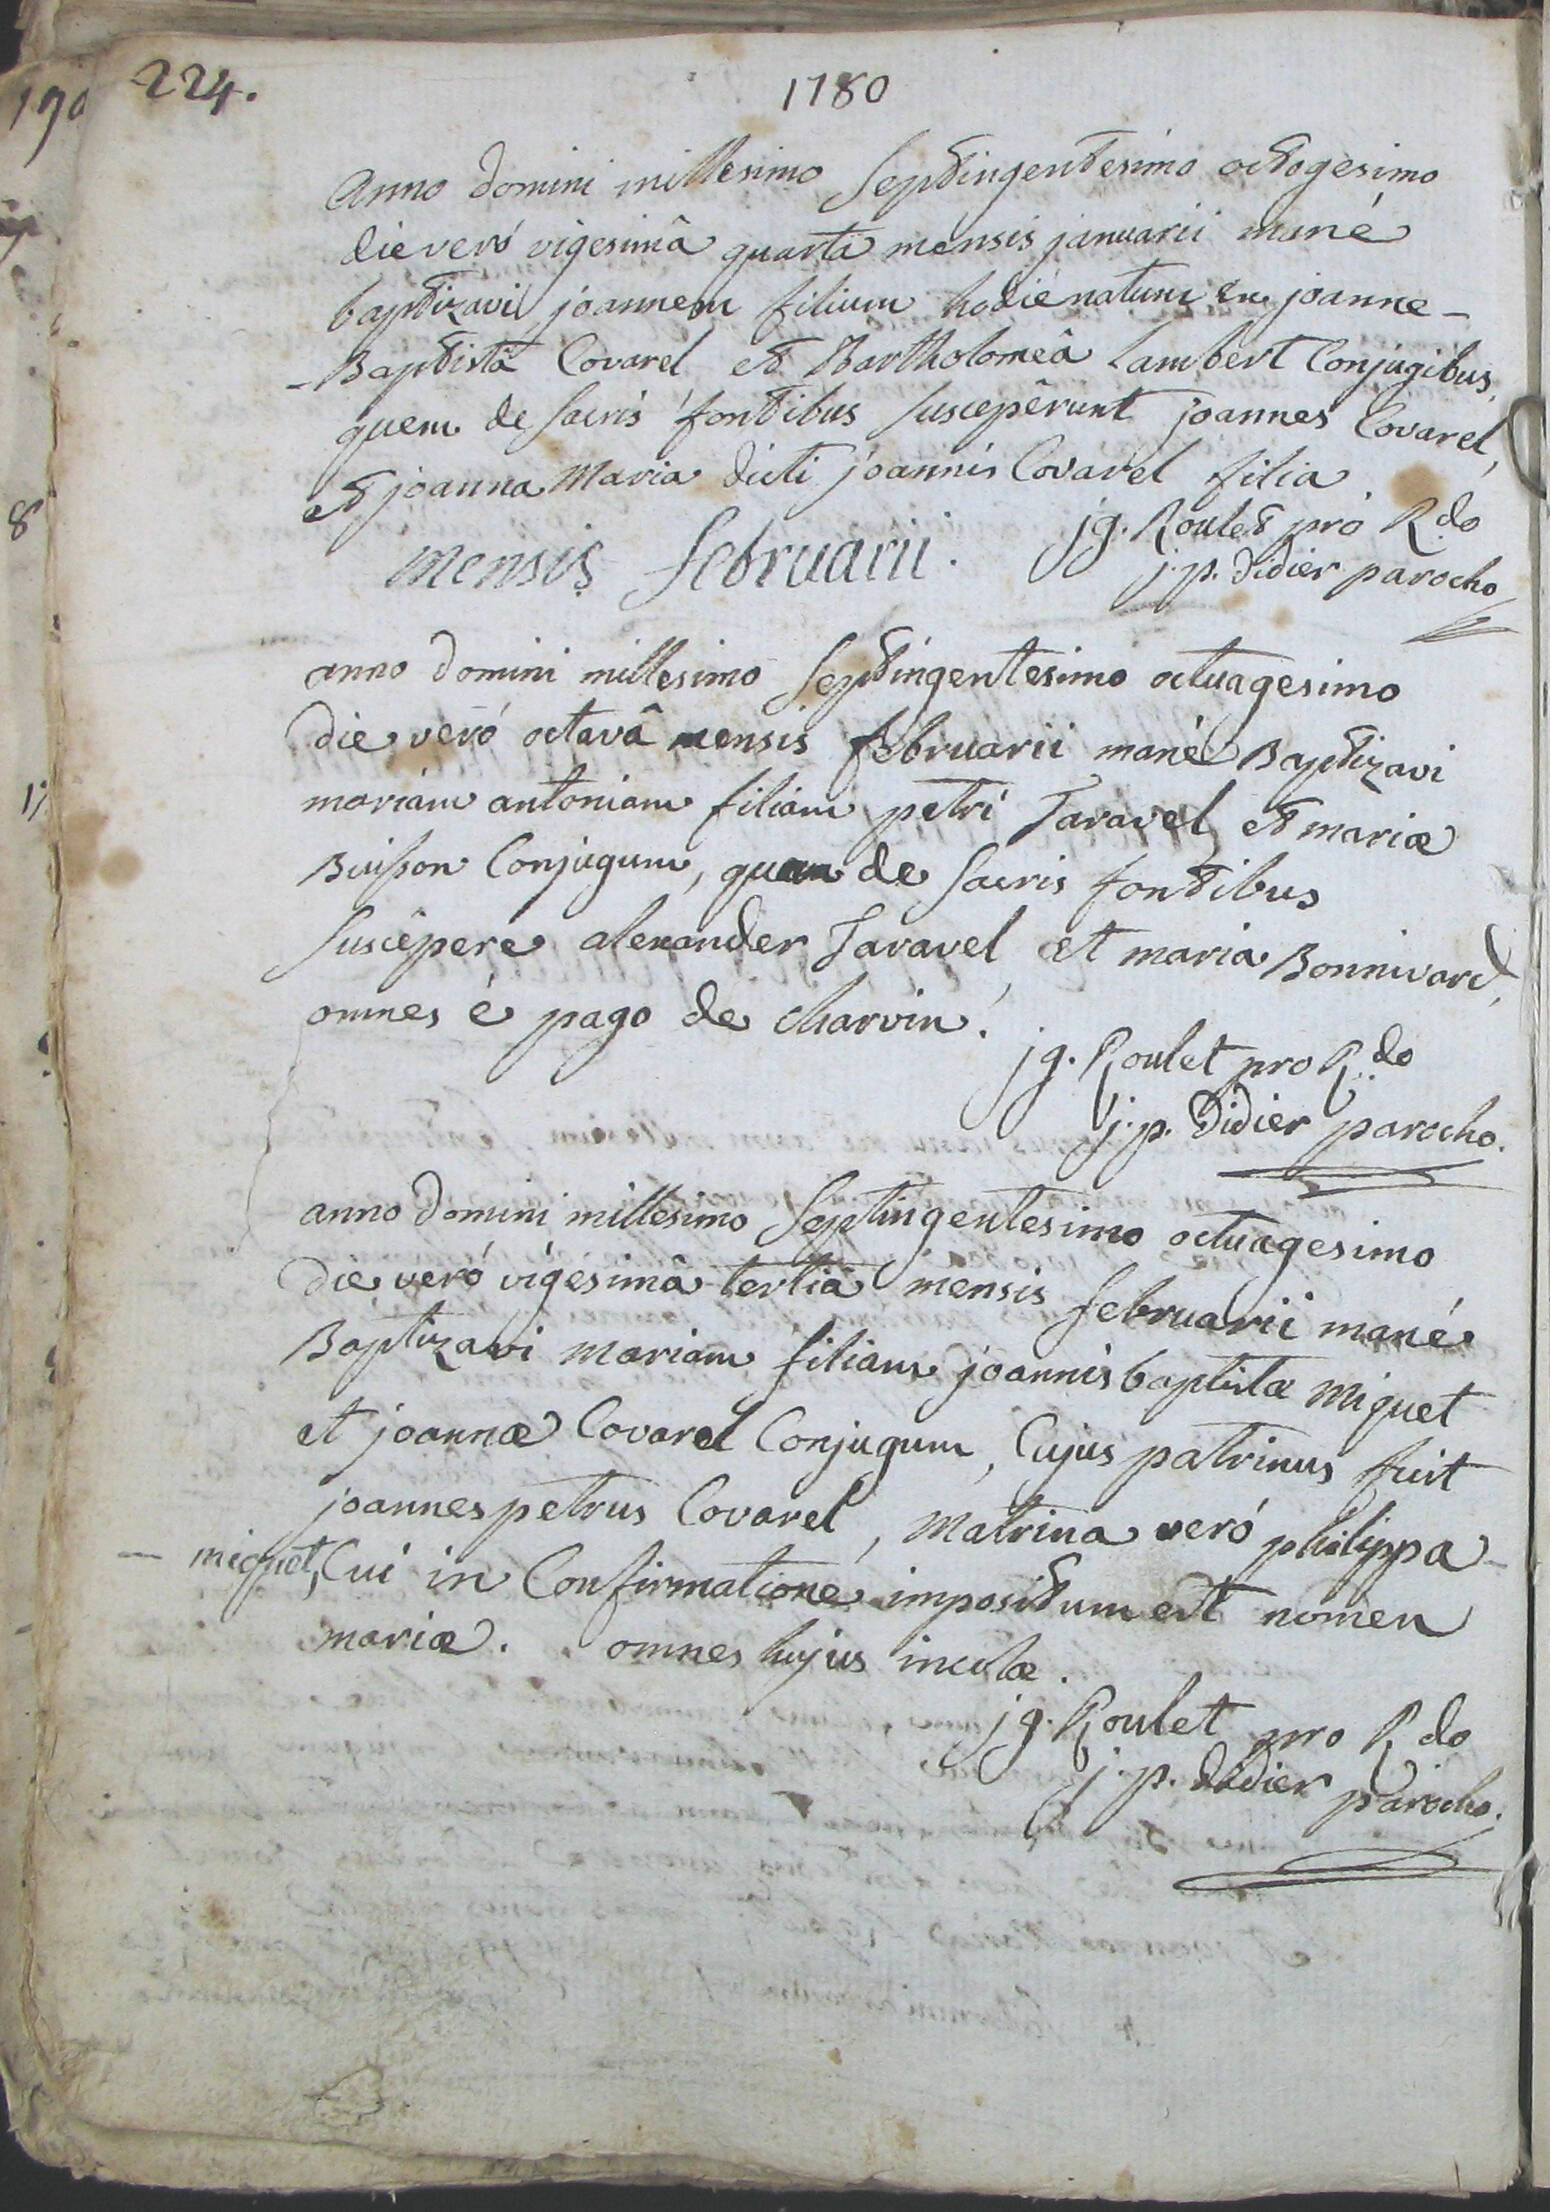 224.
1780
Anno domini millesimo Septingentesimo octogesimo
die veró vigesimâ quartâ mensis januarii mané
baptizavi joannem filium hodie natum ex joanne-
-Baptistâ Covarel et Bartholomeâ Lambert Conjugibus,
quem de Sacris fontibus Suscepêrunt joannes Covarel,
et joanna Maria dicti joannis Covarel filia
jg. Roulet pro Rdo
j. p. didier parocho
mensis februarii.
anno domini millesimo Septingentesimo octuagesimo
die veró octavâ mensis februarii mané Baptizavi
mariam antoniam filiam petri Taravel et mariæ
Buisson Conjugum, quam de Sacris fontibus
Suscêpere alexander Taravel, et maria Bonnivard,
omnes é pago de charvin.
jg. Roulet pro R.do
j. p. Didier parocho.
anno domini millesimo Septingentesimo octuagesimo
die veró vigesimâ tertiâ mensis februarii mané
Baptizavi mariam filiam joannis baptistæ Miquet
et joannæ Covarel Conjugum, Cujus patrinus fuit
joannes petrus Covarel, Matrina veró philippa-
- miquet, Cui in Confirmatione impositum est nomen
mariæ. omnes hujus incolæ.
jg. Roulet pro Rdo
j. p. didier parocho.